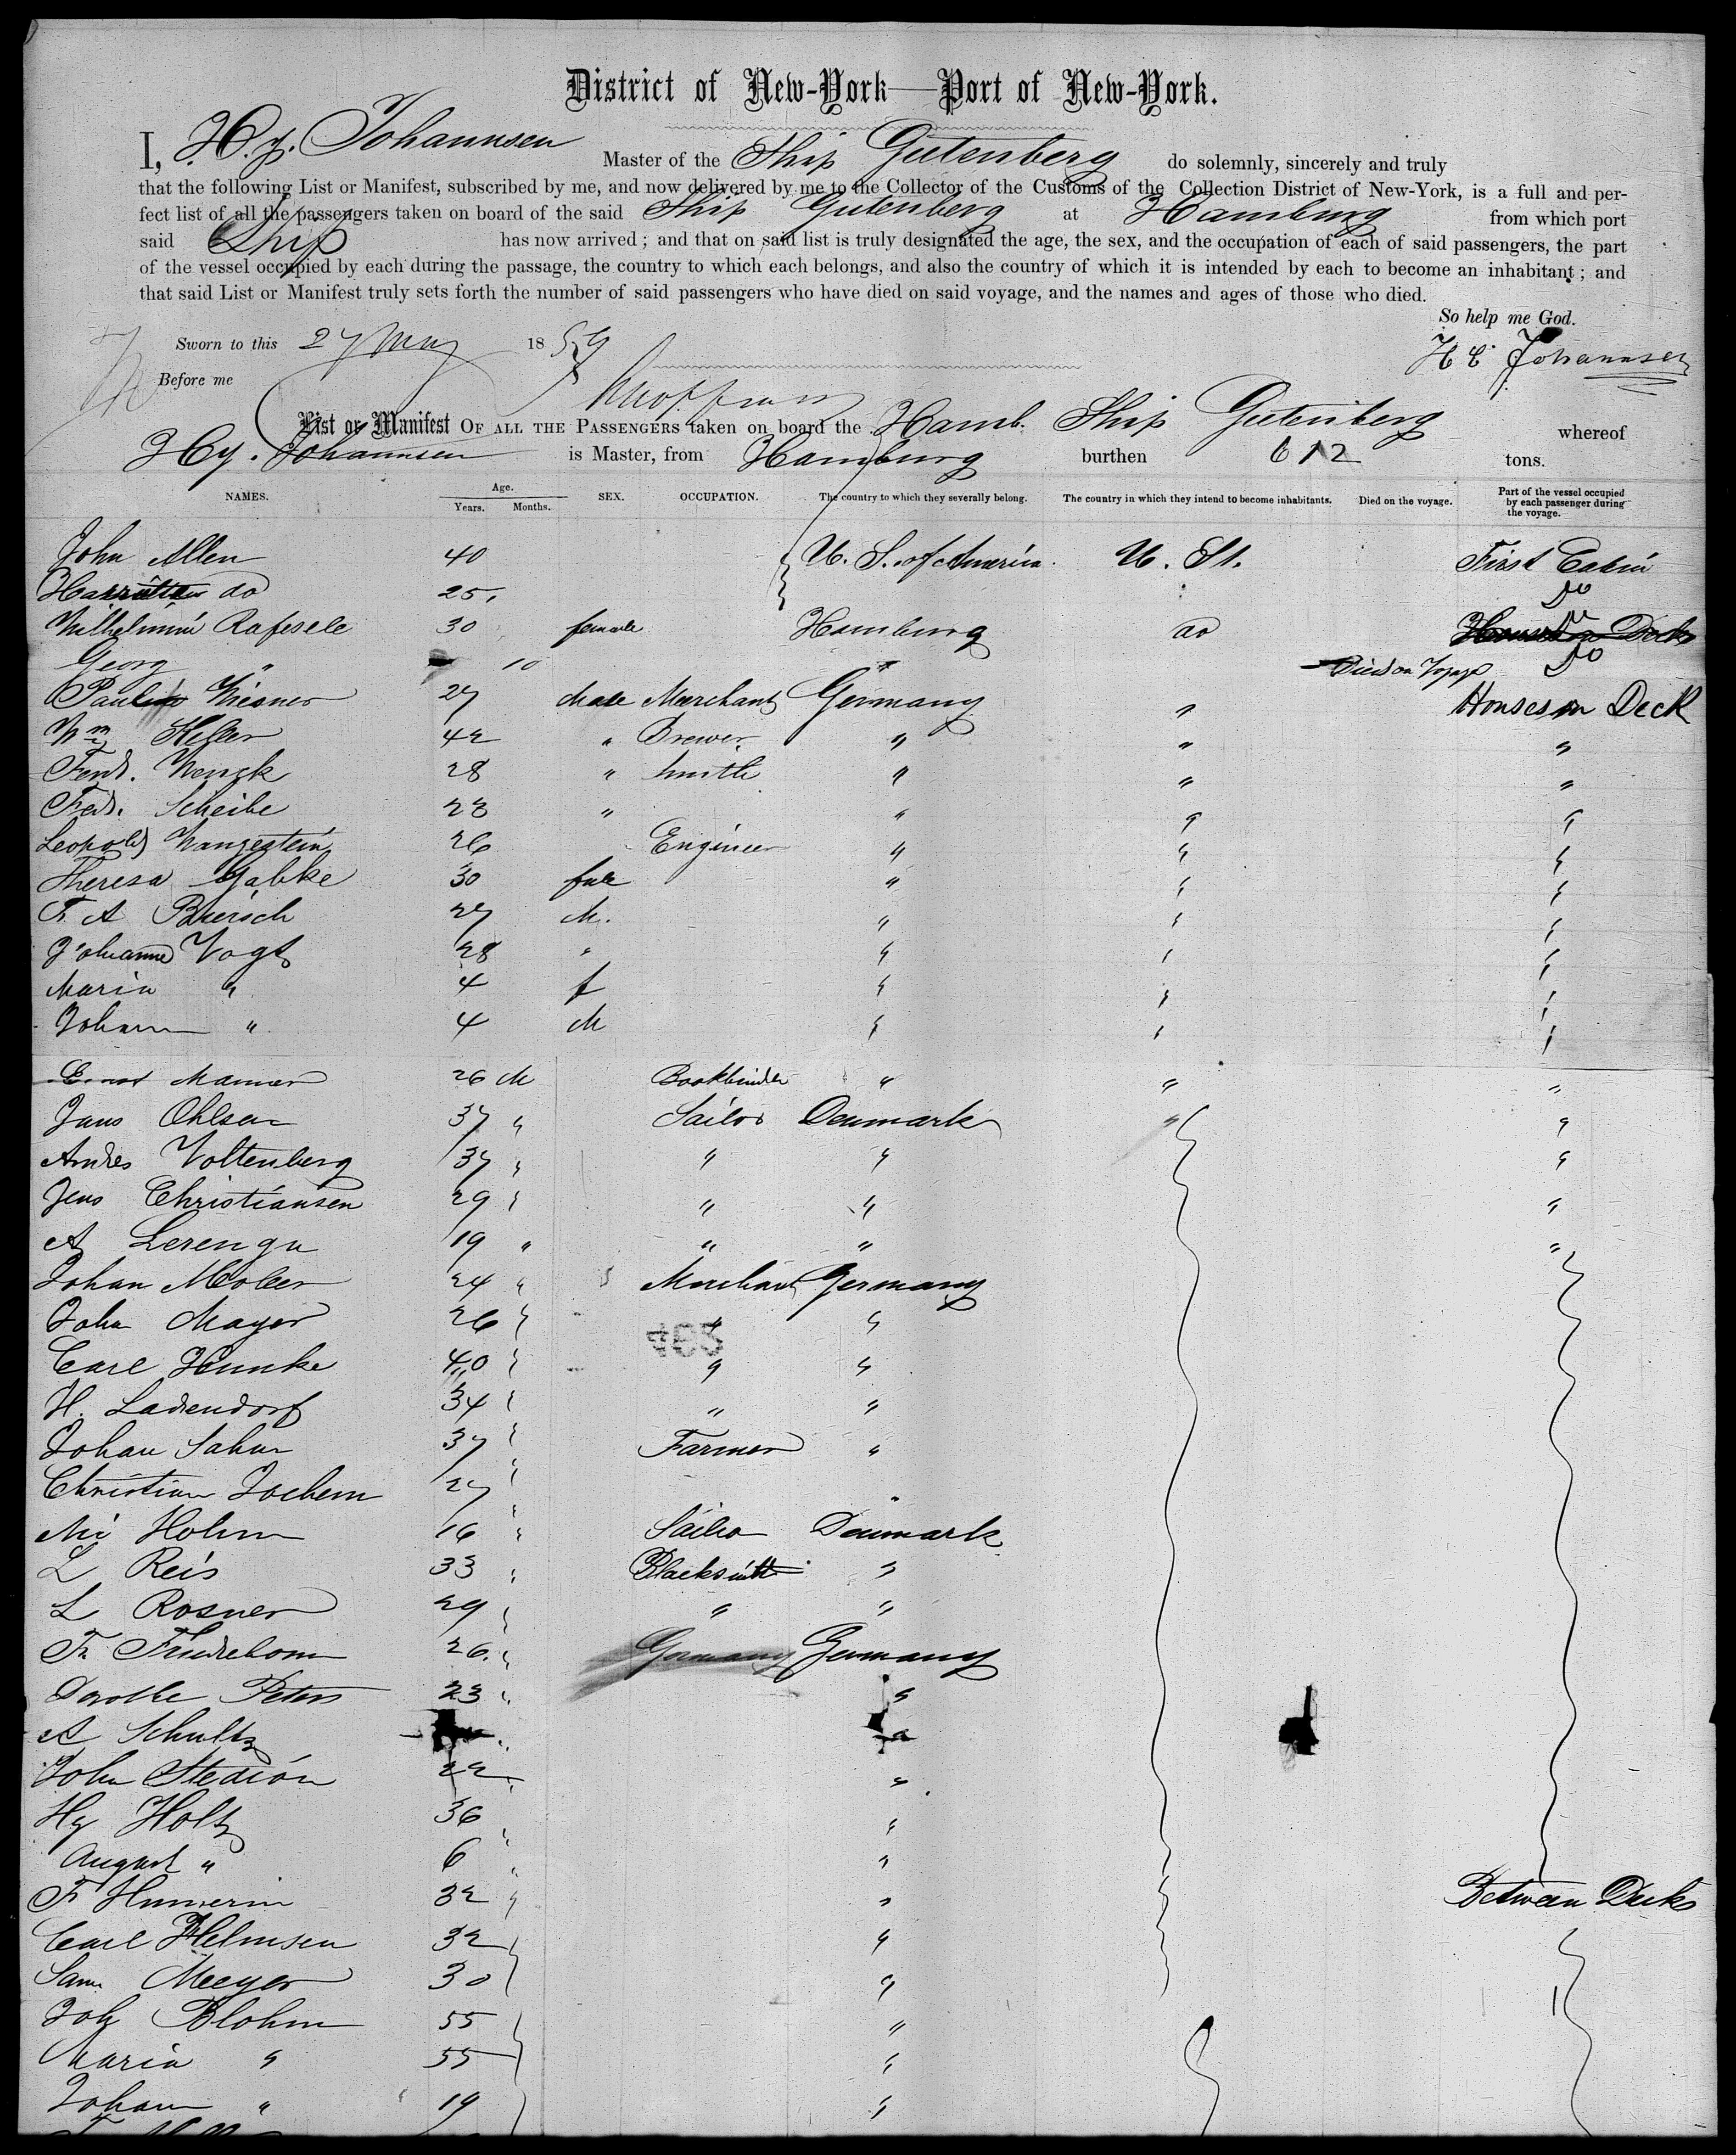 District of New-York—Port of New-York.
I, H. y. Johannsen Master of the Ship Gutenberg do solemnly, sincerely and truly
that the following List or Manifest, subscribed by me, and now delivered by me to the Collector of the Customs of the Collection District of New-York, is a full and per-
fect list of all the passengers taken on board of the said Ship Gutenberg at Hamburg from which port
said Ship has now arrived; and that on said list is truly designated the age, the sex, and the occupation of each of said passengers, the part
of the vessel occupied by each during the passage, the country to which each belongs, and also the country of which it is intended by each to become an inhabitant; and
that said List or Manifest truly sets forth the number of said passengers who have died on said voyage, and the names and ages of those who died.
So help me God.
Sworn to this 27 May 1859
H C Johannsen
Before me
List or Manifest OF ALL THE PASSENGERS taken on board the Hamb. Ship Gutenberg whereof
Hy. Johannsen is Master, from Hamburg burthen 612 tons.
NAMES. Age. Years. Months. SEX. OCCUPATION. The country to which they severally belong. The country in which they intend to become inhabitants. Died on the voyage. Part of the vessel occupied by each passenger during the voyage.
John Allen 40 U. S. of America. U. St. First Cabin
do 25 Do
30 female Hamburg do Do
Georg " 10 " Died on Voyage Do
Wiesner 27 Male Merchant Germany " Houses on Deck
Wm Heller 42 " Brewer " " "
Ferd. 28 " Smith " " "
Fred. Scheibe 28 " " " "
Leopold 26 Engineer " " "
Theresa Gabke 30 " " "
F. A 27 M. " " "
Johanna Vogt 28 " " " "
Maria " 4 f " " "
Johann " 4 M " " "
Ernst 26 M Bookbinder " " "
Jens Ohlsen 37 " Sailor Denmark " "
Andres Voltenberg 37 " " " "
Jens Christiansen 29 " " " "
A 19 " " " "
Johan Moller 24 " Merchant Germany
John Mayer 26 " " "
Carl 40 " " "
H. Ladendorf 34 " " "
Johan 37 " Farmer "
Christian Jochem 27 " "
Holm 16 " Sailor Denmark
L Reis 33 " Blacksmith "
L Rosner 29 " " "
26 " Germany Germany
Peters 23 " "
A Schultz "
John 22 " "
Hy Holtz 36 " "
August " 6 " "
32 " " Between Decks
Carl Helmsen 32 "
Sam Meeyer 30 "
Joh Blohm 55 "
Maria " 55 "
Johann " 19 "